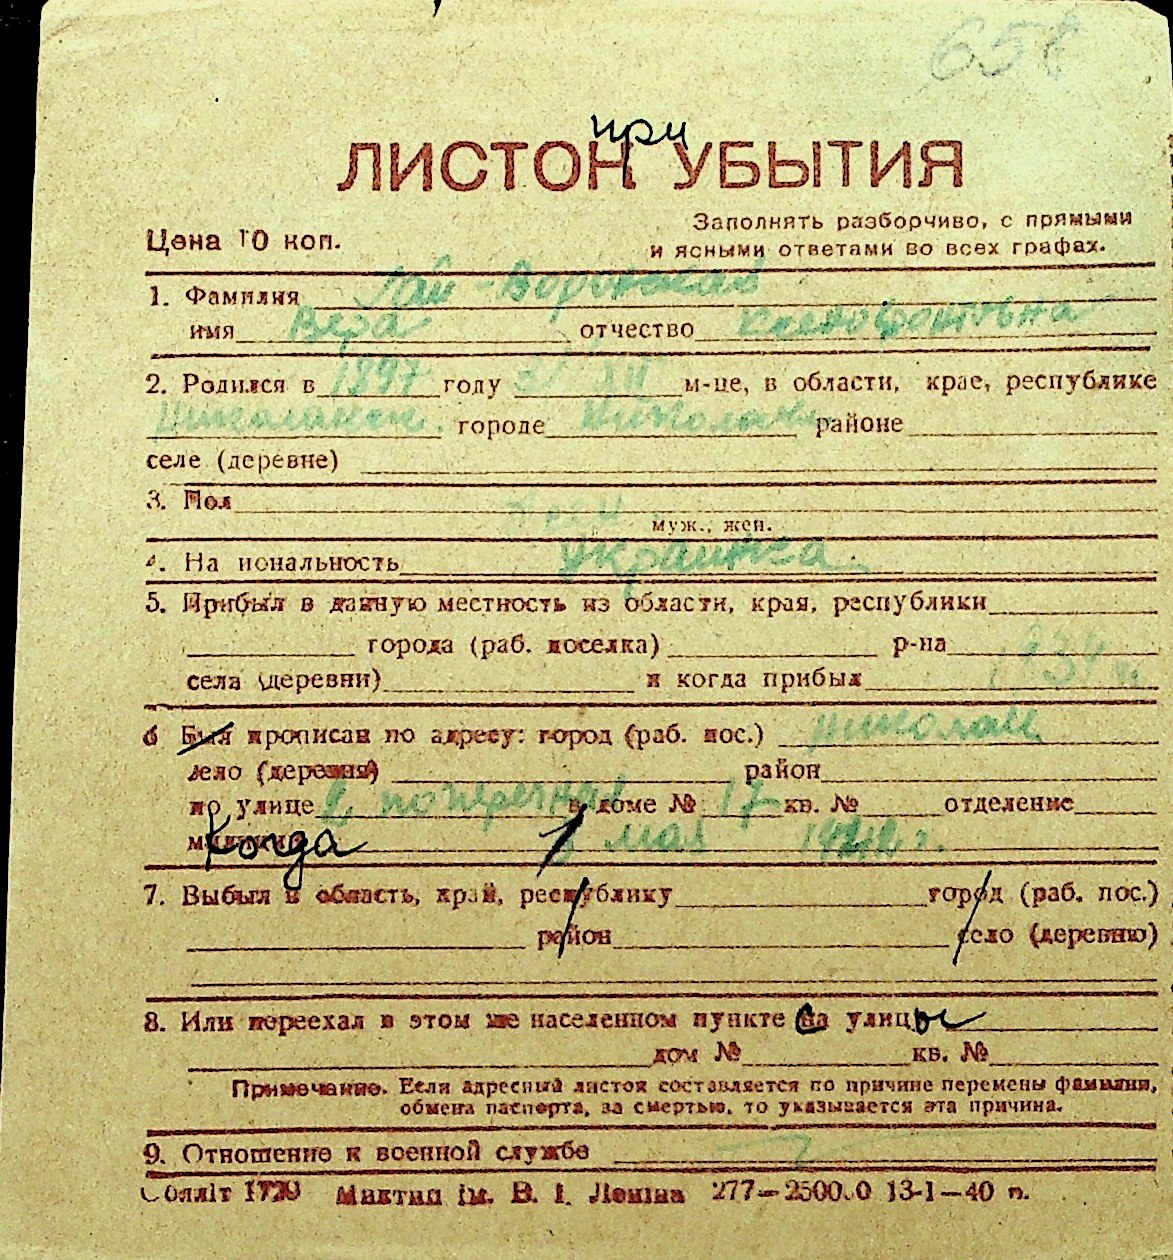 658
при
ЛИСТОК УБЫТИЯ
Цена 10 коп.
Заполнять разборчиво, с прямыми
и ясными ответами во всех графах.
1. Фамилия Гай-Воронская
имя Вера отчество Ксенофонтовна
2. Родился в 1897 году 3/XII м-це, в области, крае, республике
Николаевск. городе Николаев районе
селе (деревне)
3. Пол жен
муж., жен.
4. На иональность Украинка.
5. Прибыл в данную местность из области, края, республики
города (раб. поселка) р-на
села (деревни) и когда прибыл 1934 г.
6 Был прописан по адресу: город (раб. пос.) Николаев
село (деревня) район
по улице поперечная в доме № 17 кв. № отделение
Когда мая
7. Выбыл в область, край, республику город (раб. пос.)
район село (деревню)
8. Или переехал в этом же населенном пункте с улицы
дом № кв. №
Примечание. Если адресный листок составляется по причине перемены фамилии,
обмена паспорта, за смертью, то указывается эта причина.
9. Отношение к военной службе
Облліт 1729 Миктип ім. В. І. Леніна 277—250000 13-1—40 п.